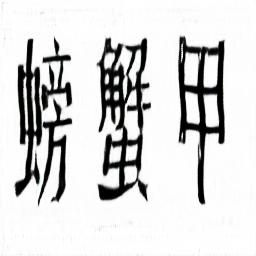 螃蟹甲